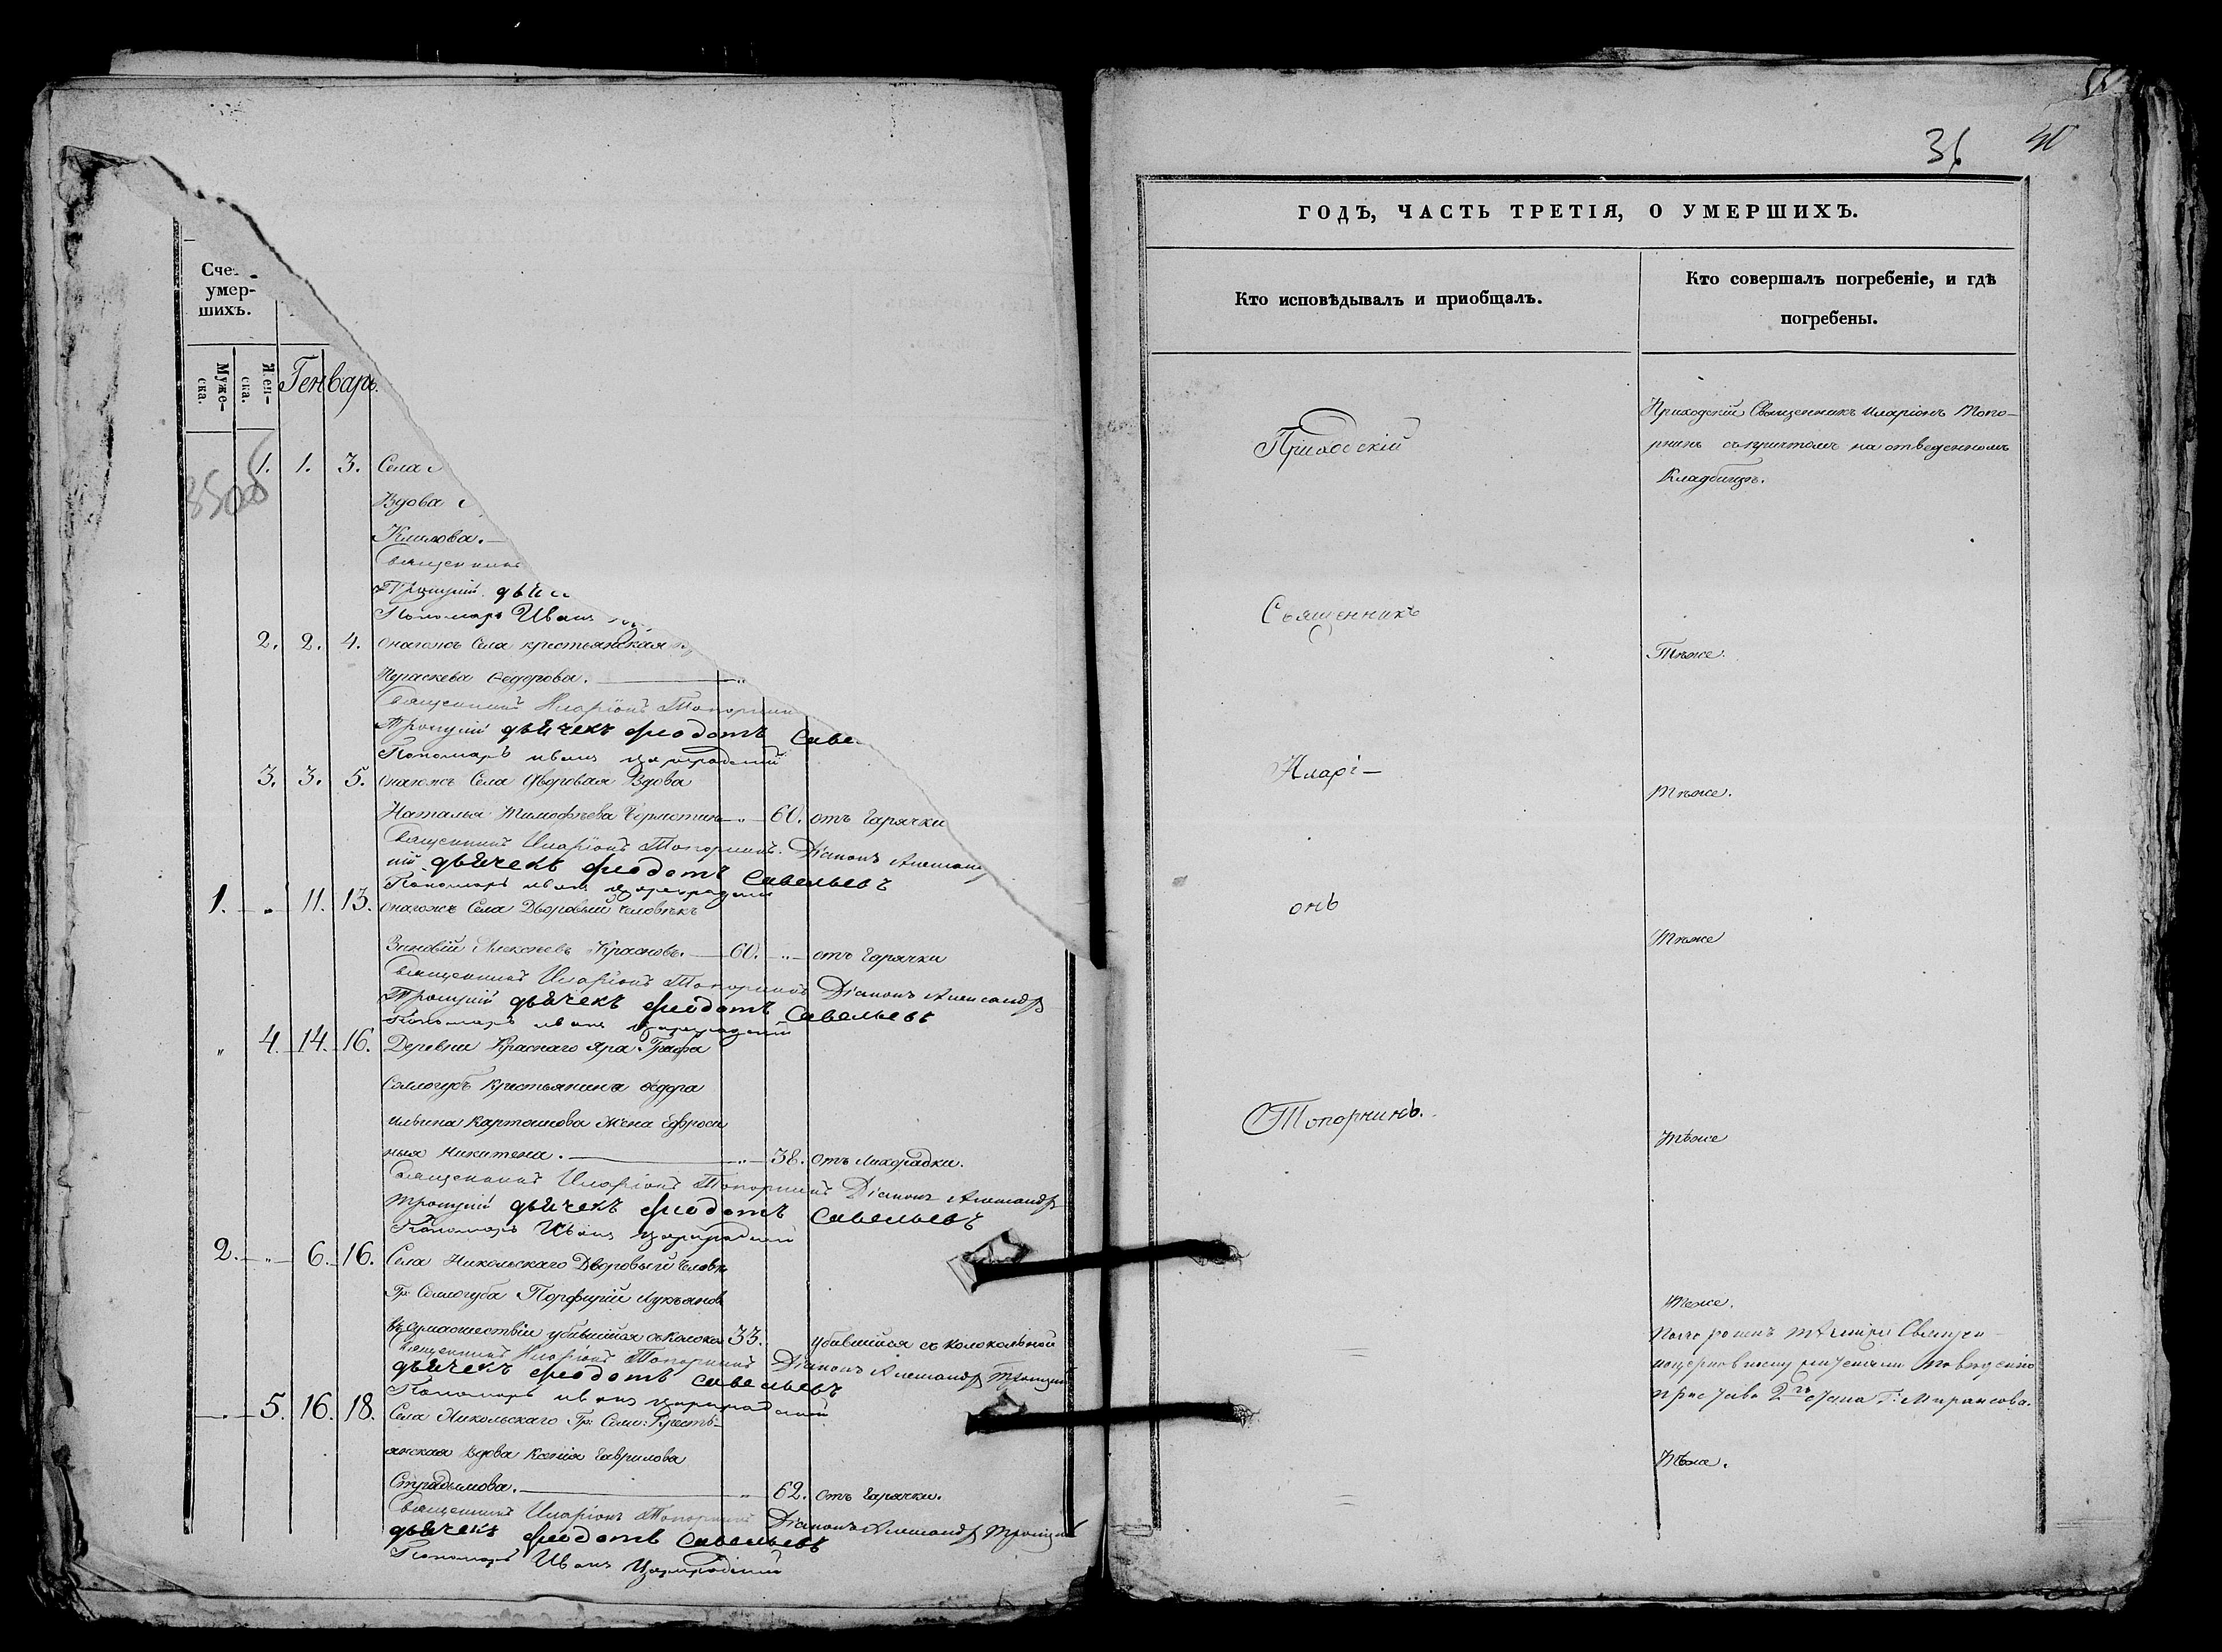 Сче
умер-
шихъ.
Муже-
ска.
Жен-
ска.
Генварь.
3508
1. 1. 3. Села
Вдова
Климова.
Священникъ
Троицкій дьячекъ
Пономарь Иванъ
2. 2. 4. Онагожъ Села крестьянская
Параскева Ѳедорова.
Священникъ Иларіонъ Топорнинъ
Троицкій дьячекъ Феодотъ Саве
Пономарь Иванъ Цареградскій
3. 3. 5. Онагожъ Села Дворовая Вдова
Наталья Тимофѣева 60. отъ Гарячки
Священникъ Иларіонъ Топорнинъ. Діаконъ Александ
кій дьячекъ Феодотъ Савельевъ
Пономарь Иванъ Цареградскій
1. " 11. 13. Онагожъ Села Дворовый человѣкъ
Зиновій Алексѣевъ Красновъ. 60. " отъ Гарячки
Священникъ Иларіонъ Топорнинъ Діаконъ Александръ
Троицкій дьячекъ Феодотъ Савельевъ
Пономарь Иванъ Цареградскій
" 4. 14. 16. Деревни Краснаго Яра Графа
Соллогубъ Крестьянина Ѳедора
Ильина Карташова Жена Ефроси
нья Никитена. " 38. отъ Лихорадки.
Священникъ Иларіонъ Топорнинъ Діаконъ Александръ
Троицкій дьячекъ Феодотъ Савельевъ
Пономарь Иванъ Цареградскій
2. " 6. 16. Села Никольскаго Дворовый человѣ
Гр: Соллогуба Порфирій Лукьянов
въ сумашествіи убившійся с колоко 33. убившійся съ колокольной
Священникъ Иларіонъ Топорнинъ Діаконъ Александръ Троицкій
дьячекъ Феодотъ Савельевъ
Пономарь Иванъ Цареградскій
" 5. 16. 18. Села Никольскаго Гр: Солл: Кресть-
янская Вдова Ксенія Гаврилова
Страдымова. " 62. отъ Гарячки.
Священникъ Иларіонъ Топорнинъ Діаконъ Александръ Троицкій
дьячекъ Феодотъ Савельевъ
Пономарь Иванъ Цареградскій
36
ГОДЪ, ЧАСТЬ ТРЕТІЯ, О УМЕРШИХЪ.
Кто исповѣдывалъ и приобщалъ.
Кто совершалъ погребеніе, и гдѣ
погребены.
Приходскій
Священникъ
Иларі-
онъ
Топорнинъ.
Приходскій Священникъ Иларіонъ Топо-
рнинъ съ причтомъ на отведенномъ
Кладбищѣ.
Тѣже.
Тѣже.
Тѣже
Тѣже
Тѣже.
приста 2го Стана Г:
Тѣже.